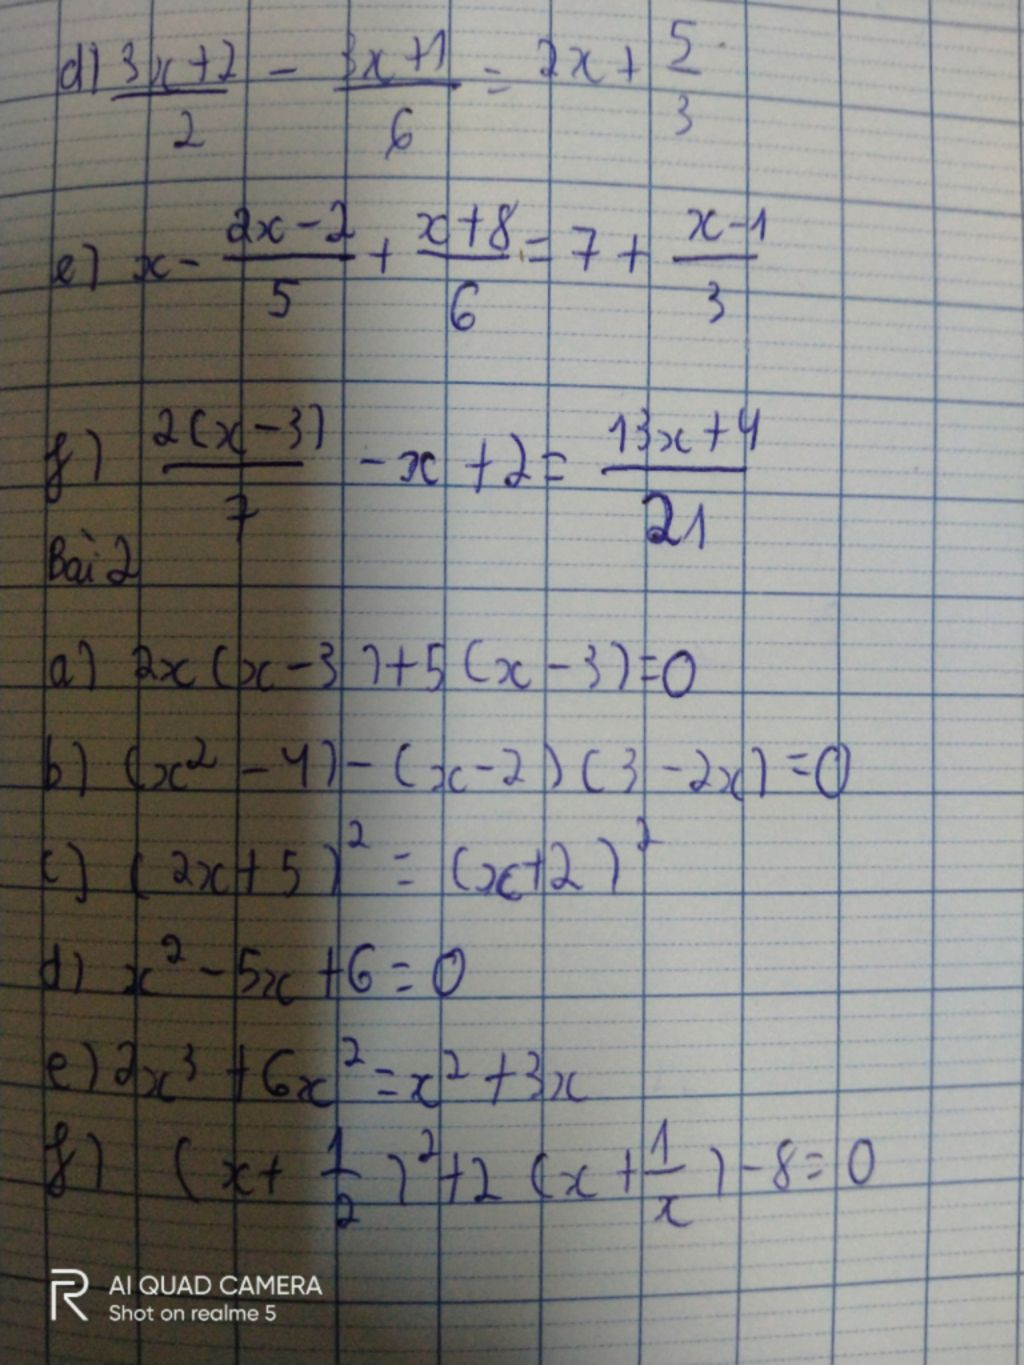 d) (3x+2)/2 - (3x+1)/6 = 2x + 5/3
e) x - (2x-2)/5 + (x+8)/6 = 7 + (x-1)/3
f) 2(x-3)/7 - x + 2 = (13x+4)/21
Bài 2
a) 2x(x-3)+5(x-3)=0
b) (x²-4)-(x-2)(3-2x)=0
c) (2x+5)² = (x+2)²
d) x²-5x+6=0
e) 2x³+6x²=x²+3x
f) (x+1/2)²+2(x+1/x)-8=0
AI QUAD CAMERA
Shot on realme 5